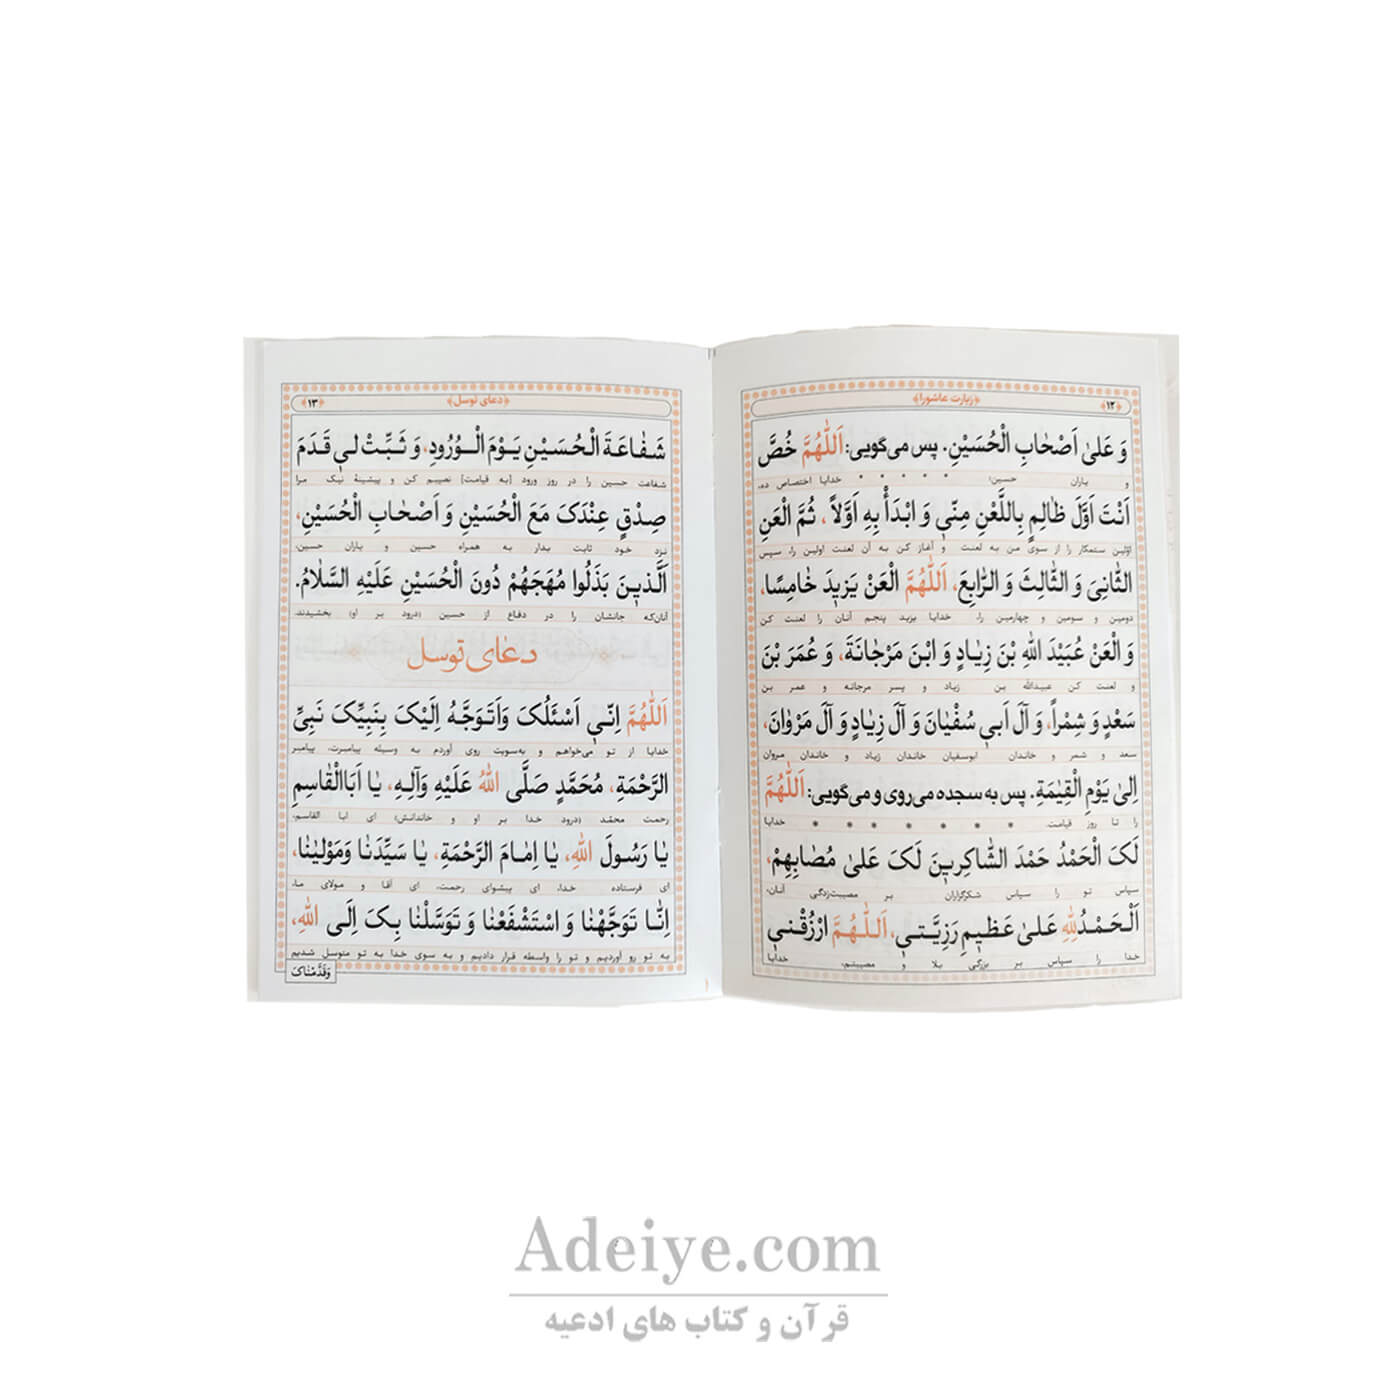 ﴿۱۲﴾ ﴿زیارت عاشورا﴾
وَ عَلىٰ اَصْحٰابِ الْحُسَیْنِ. پس می‌گویی: اَللّٰهُمَّ خُصَّ
و یاران حسین، * * * * * خدایا اختصاص ده،
اَنْتَ اَوَّلَ ظٰالِمٍ بِاللَّعْنِ مِنّٖی وَ ابْدَأْ بِهِ اَوَّلاً، ثُمَّ الْعَنِ
اوّلین ستمکار را از سوی من به لعنت و آغاز کن به آن لعنت اولین را، سپس
الثّٰانِیَ وَ الثّٰالِثَ وَ الرّٰابِعَ، اَللّٰهُمَّ الْعَنْ یَزٖیدَ خٰامِسًا،
دومین و سومین و چهارمین را، خدایا یزید پنجم آنان را لعنت کن
وَ الْعَنْ عُبَیْدَ اللّٰهِ بْنَ زِیٰادٍ وَ ابْنَ مَرْجٰانَةَ، وَ عُمَرَ بْنَ
و لعنت کن عبیدالله بن زیاد و پسر مرجانه و عمر بن
سَعْدٍ وَ شِمْراً، وَ آلَ اَبٖی سُفْیٰانَ وَ آلَ زِیٰادٍ وَ آلَ مَرْوٰانَ،
سعد و شمر و خاندان ابوسفیان خاندان زیاد و خاندان مروان
اِلىٰ یَوْمِ الْقِیٰمَةِ. پس به سجده می‌روی و می‌گویی: اَللّٰهُمَّ
را تا روز قیامت. * * * * * * * خدایا
لَکَ الْحَمْدُ حَمْدَ الشّٰاکِرٖینَ لَکَ عَلىٰ مُصٰابِهِمْ،
سپاس تو را سپاس شکرگزاران بر مصیبت‌زدگی آنان،
اَلْحَمْدُ لِلّٰهِ عَلىٰ عَظٖیمِ رَزِیَّتٖی، اَللّٰهُمَّ ارْزُقْنٖی
خدا را سپاس بر بزرگی بلا و مصیبتم، خدایا
﴿دعای توسل﴾ ﴿۱۳﴾
شَفٰاعَةَ الْحُسَیْنِ یَوْمَ الْوُرُودِ، وَ ثَبِّتْ لٖی قَدَمَ
شفاعت حسین را در روز ورود [به قیامت] نصیبم کن و پیشینهٔ نیک مرا
صِدْقٍ عِنْدَکَ مَعَ الْحُسَیْنِ وَ اَصْحٰابِ الْحُسَیْنِ،
نزد خود ثابت بدار به همراه حسین و یاران حسین،
اَلَّذٖینَ بَذَلُوا مُهَجَهُمْ دُونَ الْحُسَیْنِ عَلَیْهِ السَّلٰامُ.
آنان‌که جانشان را در دفاع از حسین (درود بر او) بخشیدند.
دعای توسل
اَللّٰهُمَّ اِنّٖی اَسْئَلُکَ وَاَتَوَجَّهُ اِلَیْکَ بِنَبِیِّکَ نَبِیِّ
خدایا از تو می‌خواهم و به‌سویت روی آوردم به وسیله پیامبرت، پیامبر
الرَّحْمَةِ، مُحَمَّدٍ صَلَّی اللّٰهُ عَلَیْهِ وَآلِهِ، یٰا اَبَاالْقٰاسِمِ
رحمت محمّد (درود خدا بر او و خاندانش) ای ابا القاسم،
یٰا رَسُولَ اللّٰهِ، یٰا اِمٰامَ الرَّحْمَةِ، یٰا سَیِّدَنٰا وَمَوْلیٰنٰا،
ای فرستاده خدا، ای پیشوای رحمت، ای آقا و مولای ما،
اِنّٰا تَوَجَّهْنٰا وَ اسْتَشْفَعْنٰا وَ تَوَسَّلْنٰا بِکَ اِلَی اللّٰهِ،
به تو رو آوردیم و تو را واسطه قرار دادیم و به سوی خدا به تو متوسل شدیم
وَقَدَّمْنٰاکَ
Adeiye.com
قرآن و کتاب های ادعیه